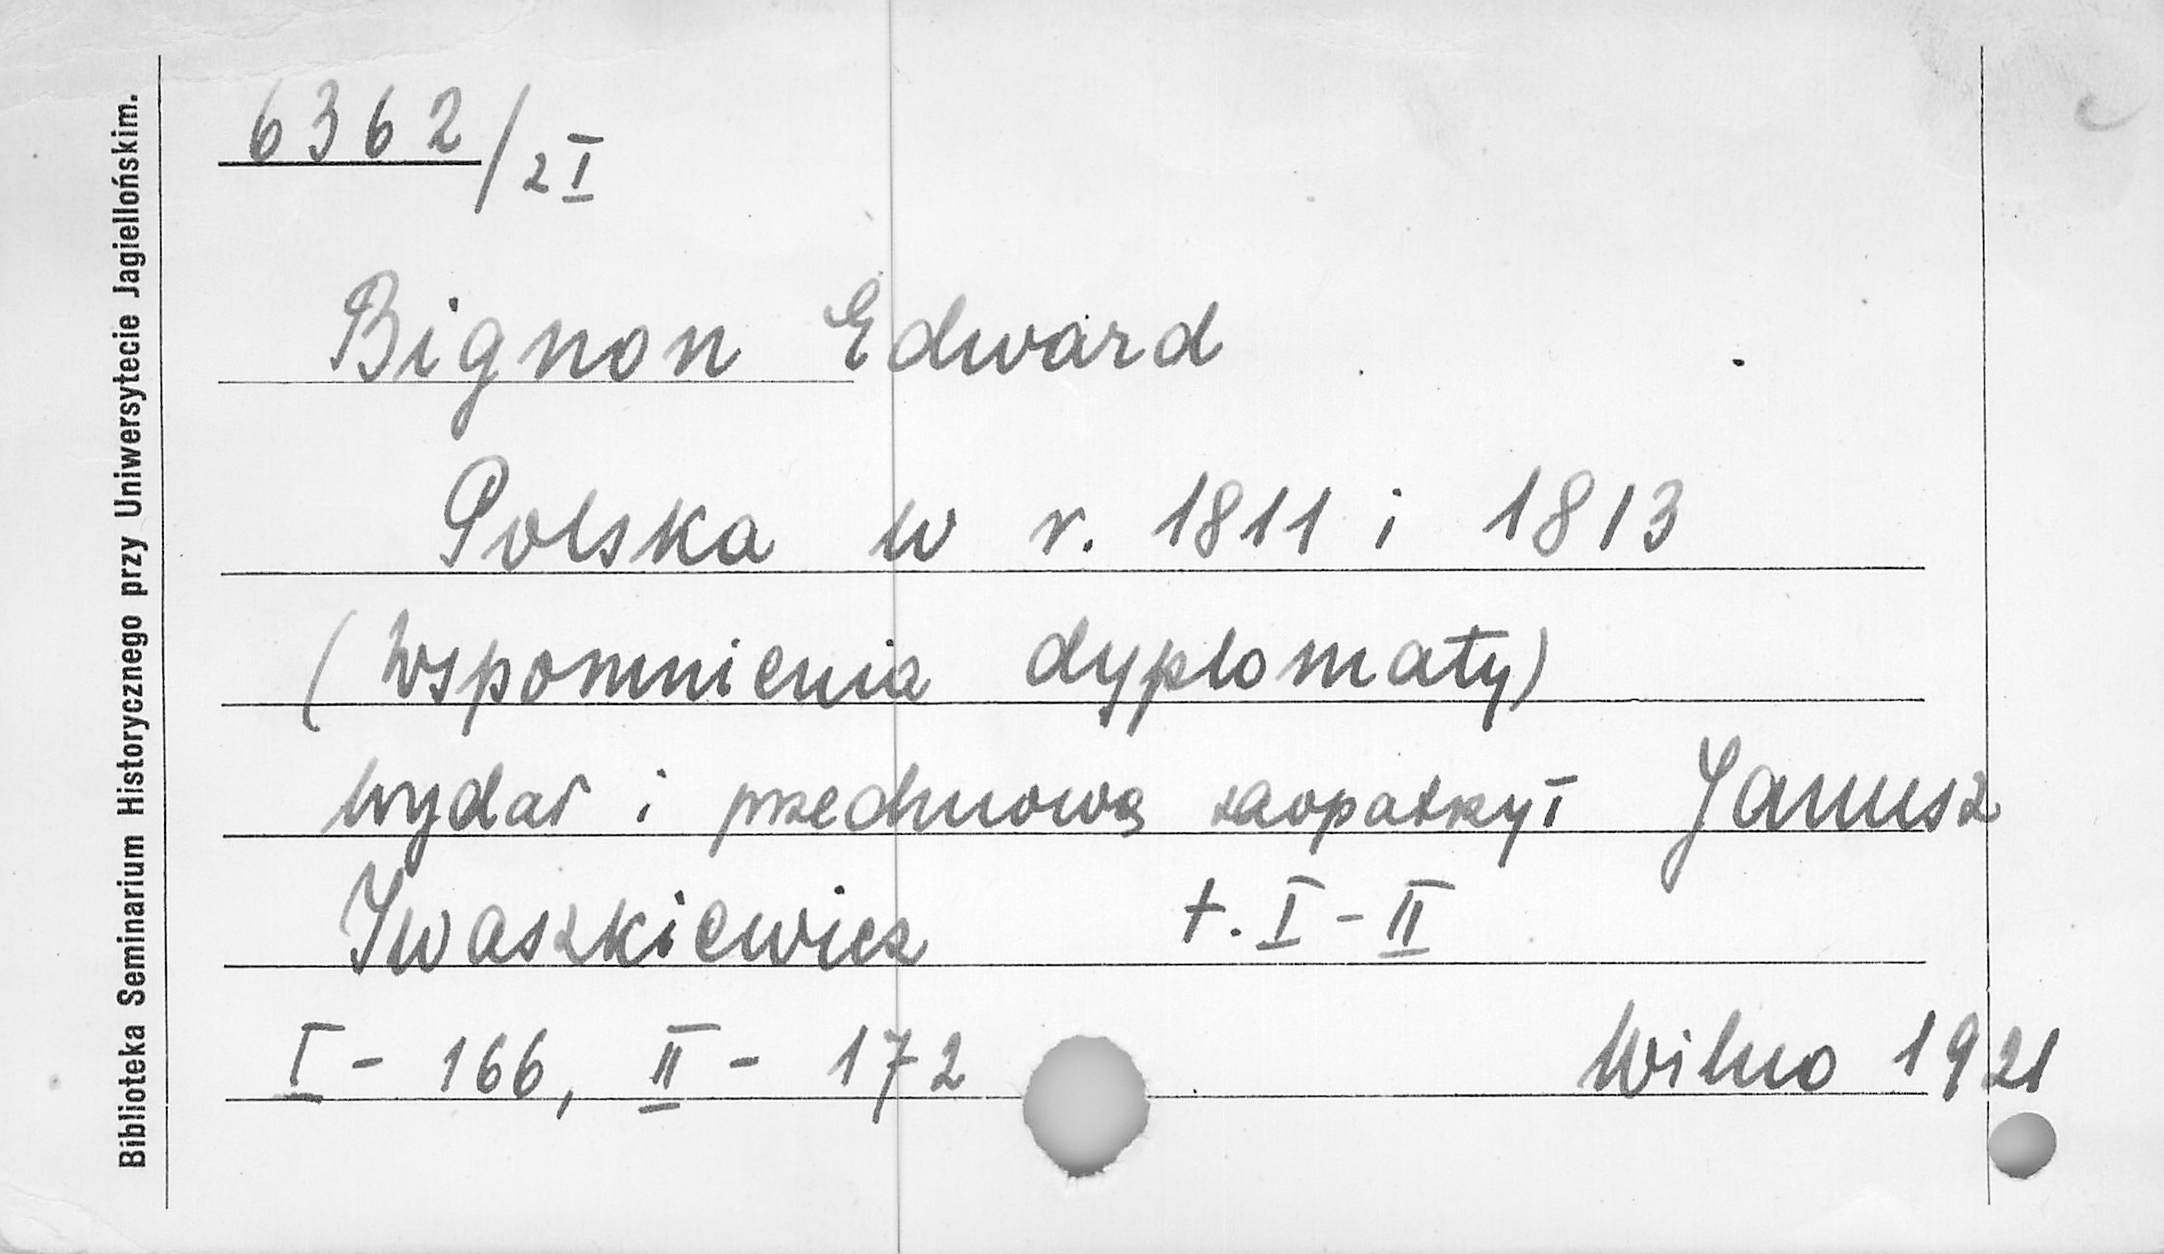 Biblioteka Seminarium Historycznego przy Uniwersytecie Jagiellońskim.
6362/2I
Bignon Edward
Polska w r. 1811 i 1813
(Wspomnienia dyplomaty)
wydał i przedmową zaopatrzył Janusz
Iwaszkiewicz t. I-II
I - 166, II - 172 Wilno 1921